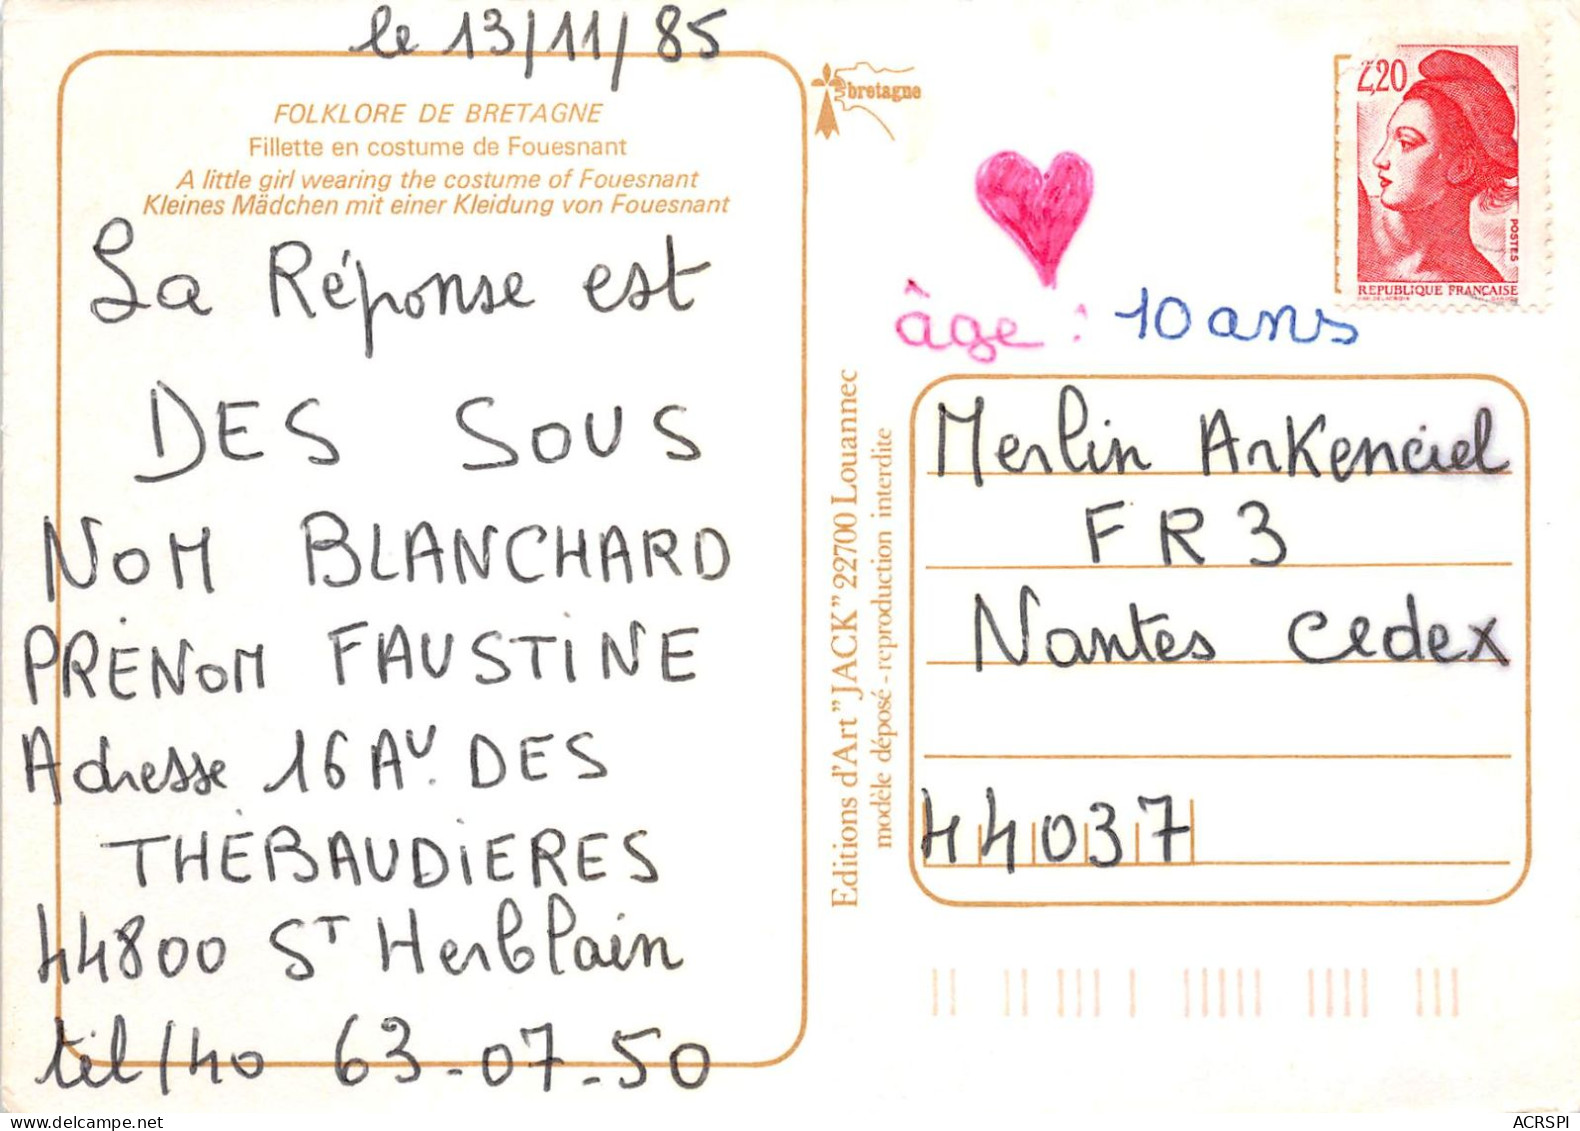 le 13/11/85
FOLKLORE DE BRETAGNE
Fillette en costume de Fouesnant
A little girl wearing the costume of Fouesnant
Kleines Mädchen mit einer Kleidung von Fouesnant
La Réponse est
DES SOUS
NOM BLANCHARD
PRÉNOM FAUSTINE
Adresse 16 AV. DES
THÉBAUDIERES
44800 ST Herblain
tél/40 63-07-50
bretagne
Editions d'Art "JACK" 22700 Louannec
modèle déposé - reproduction interdite
2,20
POSTES
REPUBLIQUE FRANÇAISE
âge : 10 ans
Merlin Arkenciel
FR3
Nantes Cedex
44037
ACRSPI